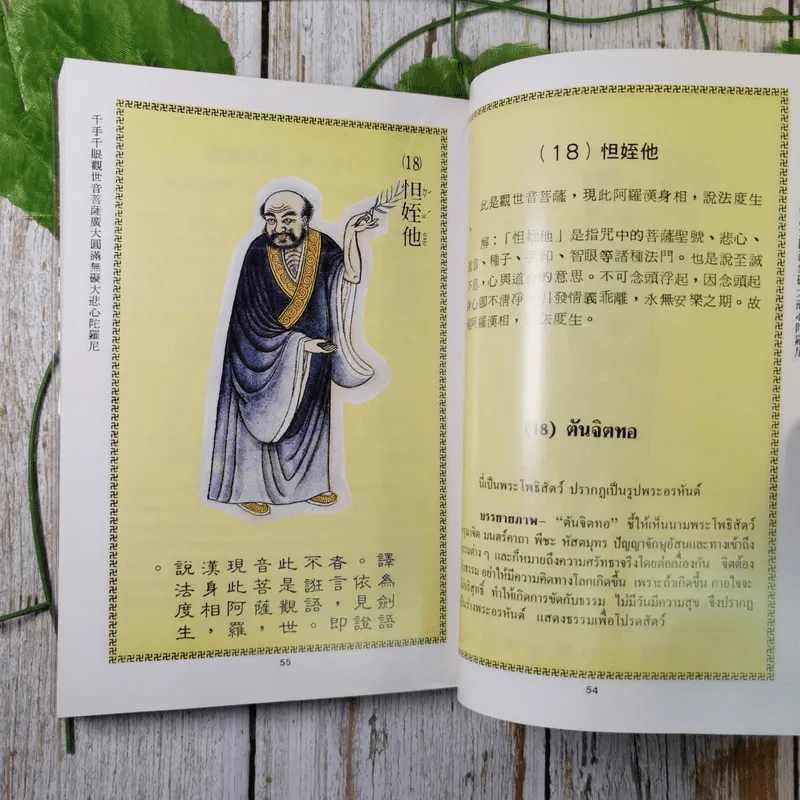 (18) 怛姪他
此是觀世音菩薩，現此阿羅漢身相，說法度生
。
解：「怛姪他」是指咒中的菩薩聖號、悲心、
言、種子、印、智眼等諸種法門。也是說至誠
息，心與道合的意思。不可念頭浮起，因念頭起
心即不清淨，發情義乖離，永無安樂之期。故
阿羅漢相，法度生。
(18) ตันจิตทอ
นี่เป็นพระโพธิสัตว์ ปรากฏเป็นรูปพระอรหันต์
บรรยายภาพ– “ตันจิตทอ” ชี้ให้เห็นนามพระโพธิสัตว์
มนตร์คาถา พีชะ หัสตมุทร ปัญญาจักษุอัสนและทางเข้าถึง
ธรรมต่าง ๆ และก็หมายถึงความศรัทธาจริงโดยต่อเนื่องกัน จิตต้อง
ธรรม อย่าให้มีความคิดทางโลกเกิดขึ้น เพราะถ้าเกิดขึ้น ภายใจจะ
ทำให้เกิดการขัดกับธรรม ไม่มีวันมีความสุข จึงปรากฏ
พระอรหันต์ แสดงธรรมเพื่อโปรดสัตว์
54
千手千眼觀世音菩薩廣大圓滿無礙大悲心陀羅尼
(18) 怛姪他
譯為劍語
。依見證
言，即
不誑語。
此是觀世
音菩薩，
現此阿羅
漢身相，
說法度生
。
55